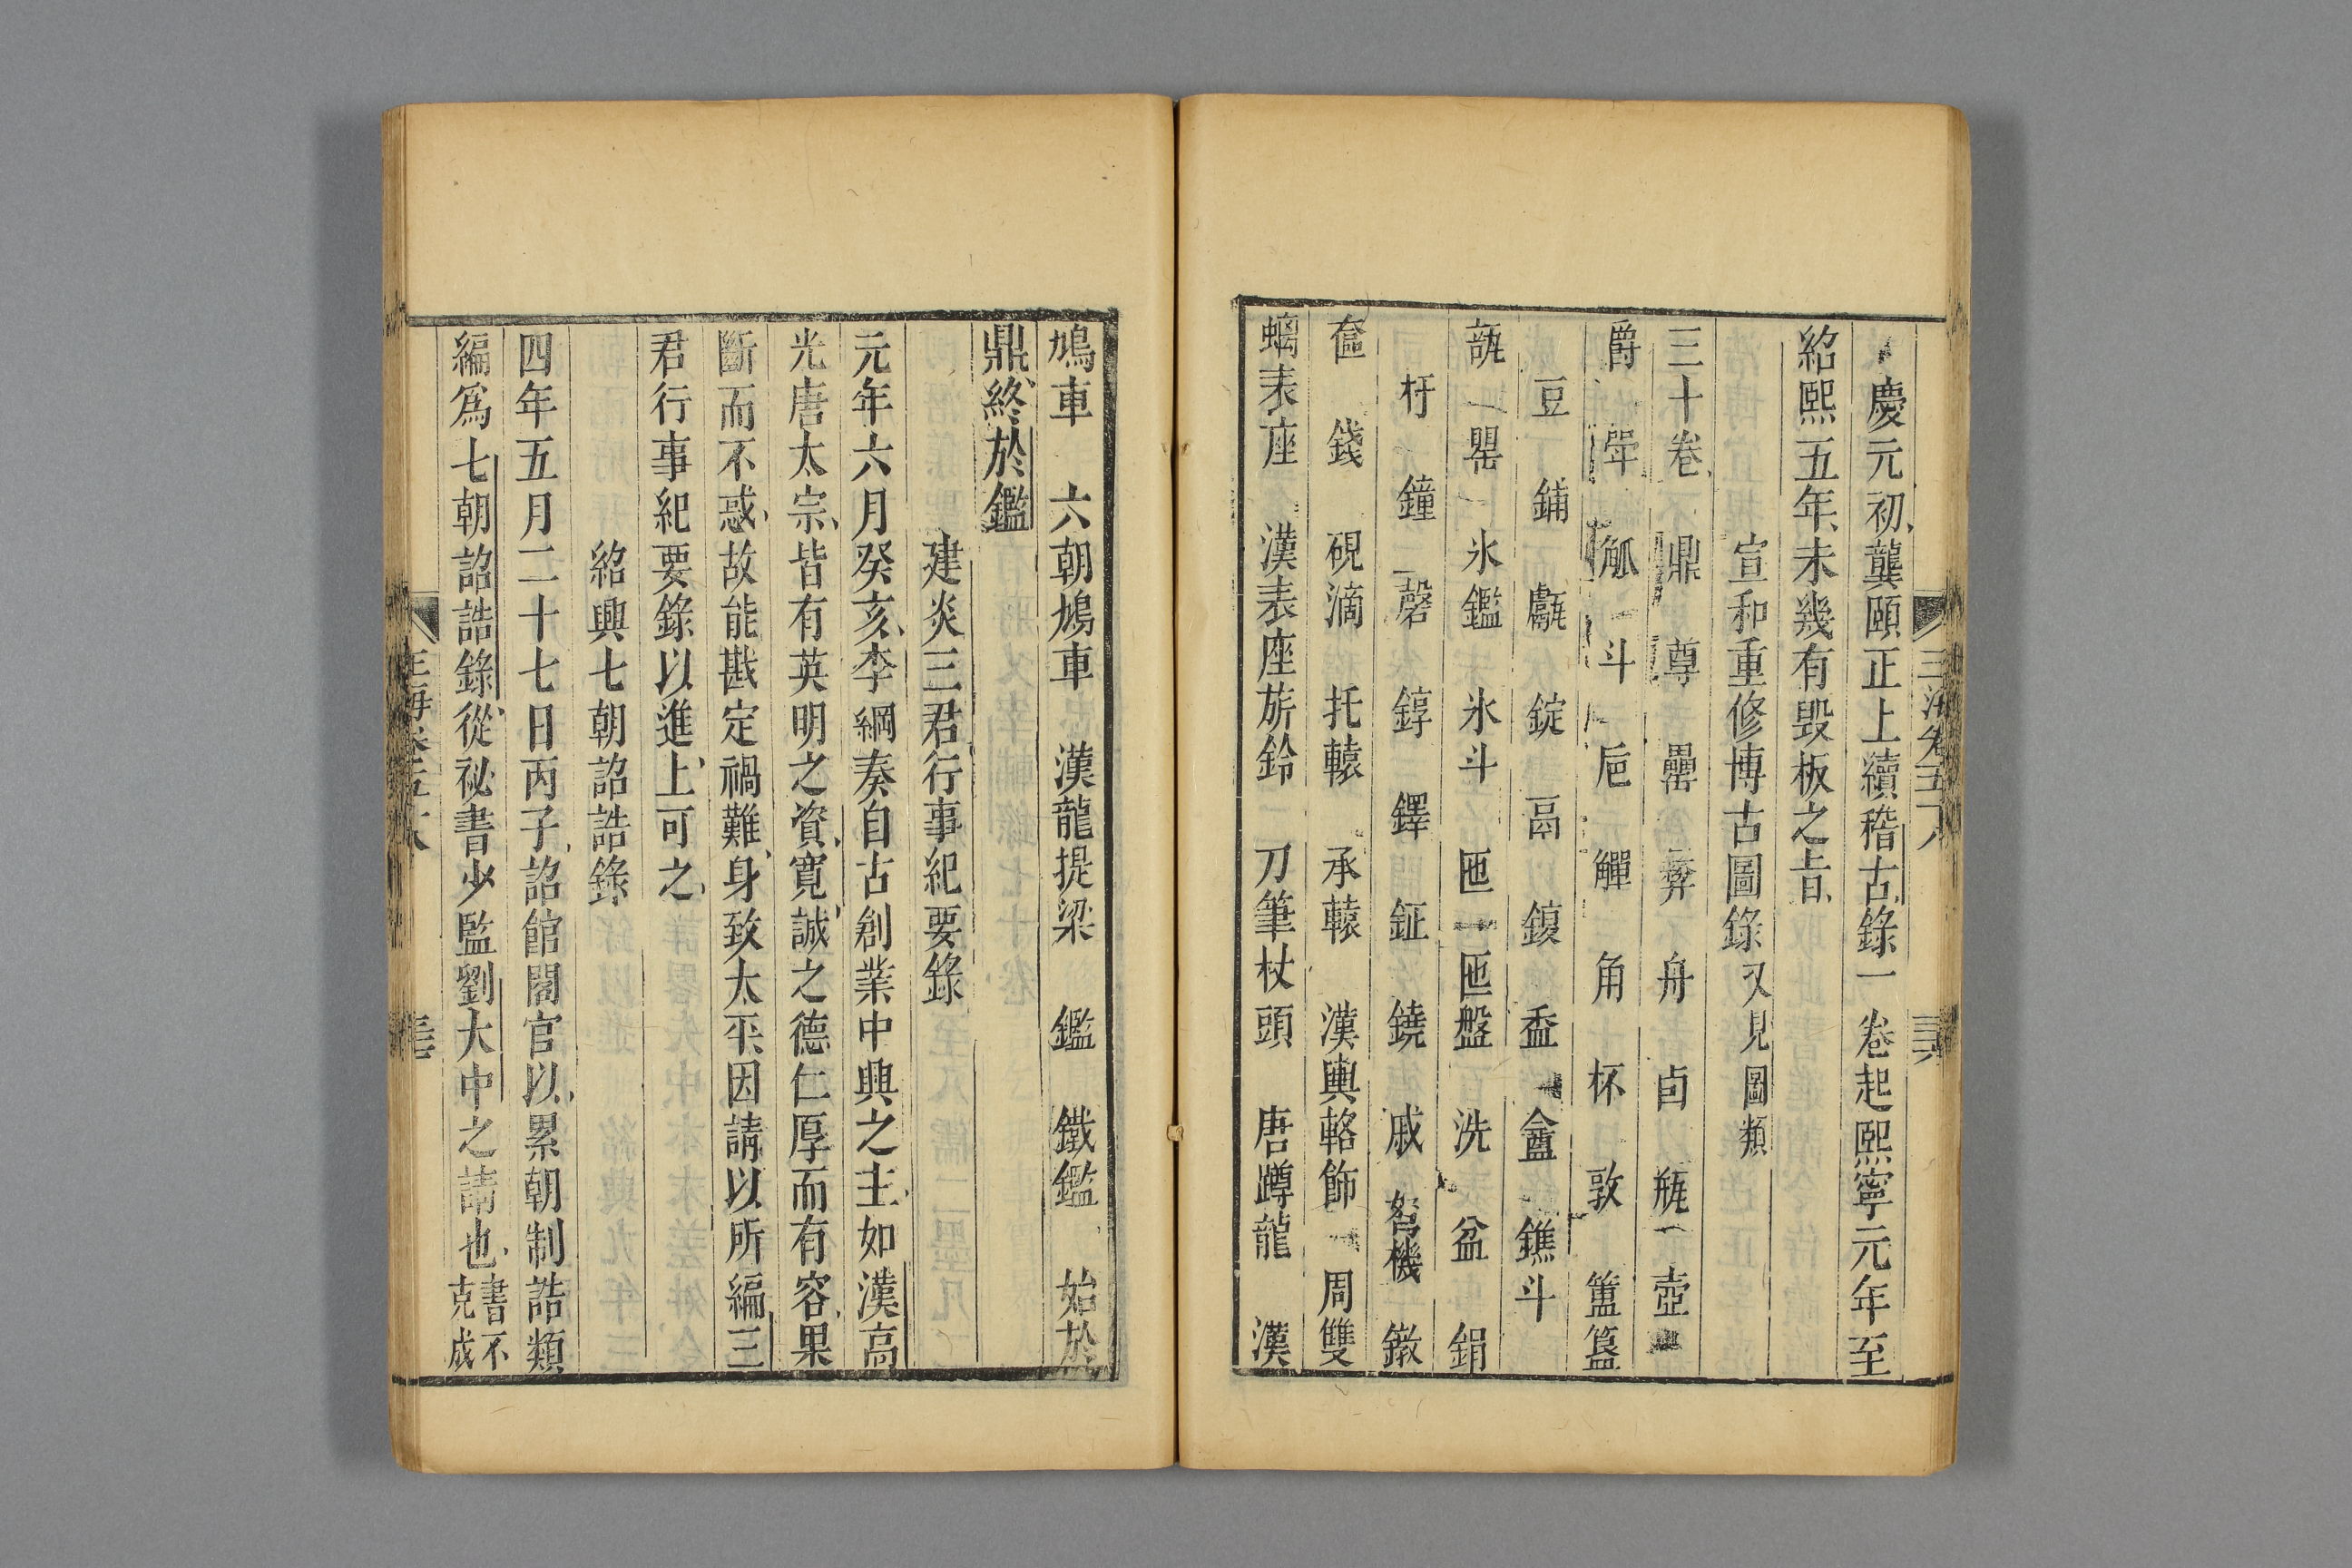 慶元初龔頤正上續稽古錄一卷起熙寧元年至
紹熙五年未幾有毁板之旨
宣和重修博古圖錄又見圖類
三十卷 鼎 尊 罍 彝 舟 卣 瓶 壺
爵 斝 觚 斗 卮 觶 角 杯 敦 簠簋
豆 鋪 甗 錠 鬲 鍑 盉 盦 鐎斗
瓿 罌 氷鑑 氷斗 匜 匜盤 洗 盆 鋗
杅 鐘 磬 錞 鐸 鉦 鐃 戚 弩機 鐓
奩 錢 硯滴 托轅 承轅 漢輿輅飾 周雙
螭表座 漢表座旂鈴 刀筆杖頭 唐蹲龍 漢
鳩車 六朝鳩車 漢龍提梁 鑑 鐵鑑 始於
鼎終於鑑
建炎三君行事紀要錄
元年六月癸亥李綱奏自古創業中興之主如漢高
光唐太宗皆有英明之資寬誠之德仁厚而有容果
斷而不惑故能戡定禍難身致太平因請以所編三
君行事紀要錄以進上可之
紹興七朝詔誥錄
四年五月二十七日丙子詔館閣官以累朝制誥類
編爲七朝詔誥錄從祕書少監劉大中之請也書不克成